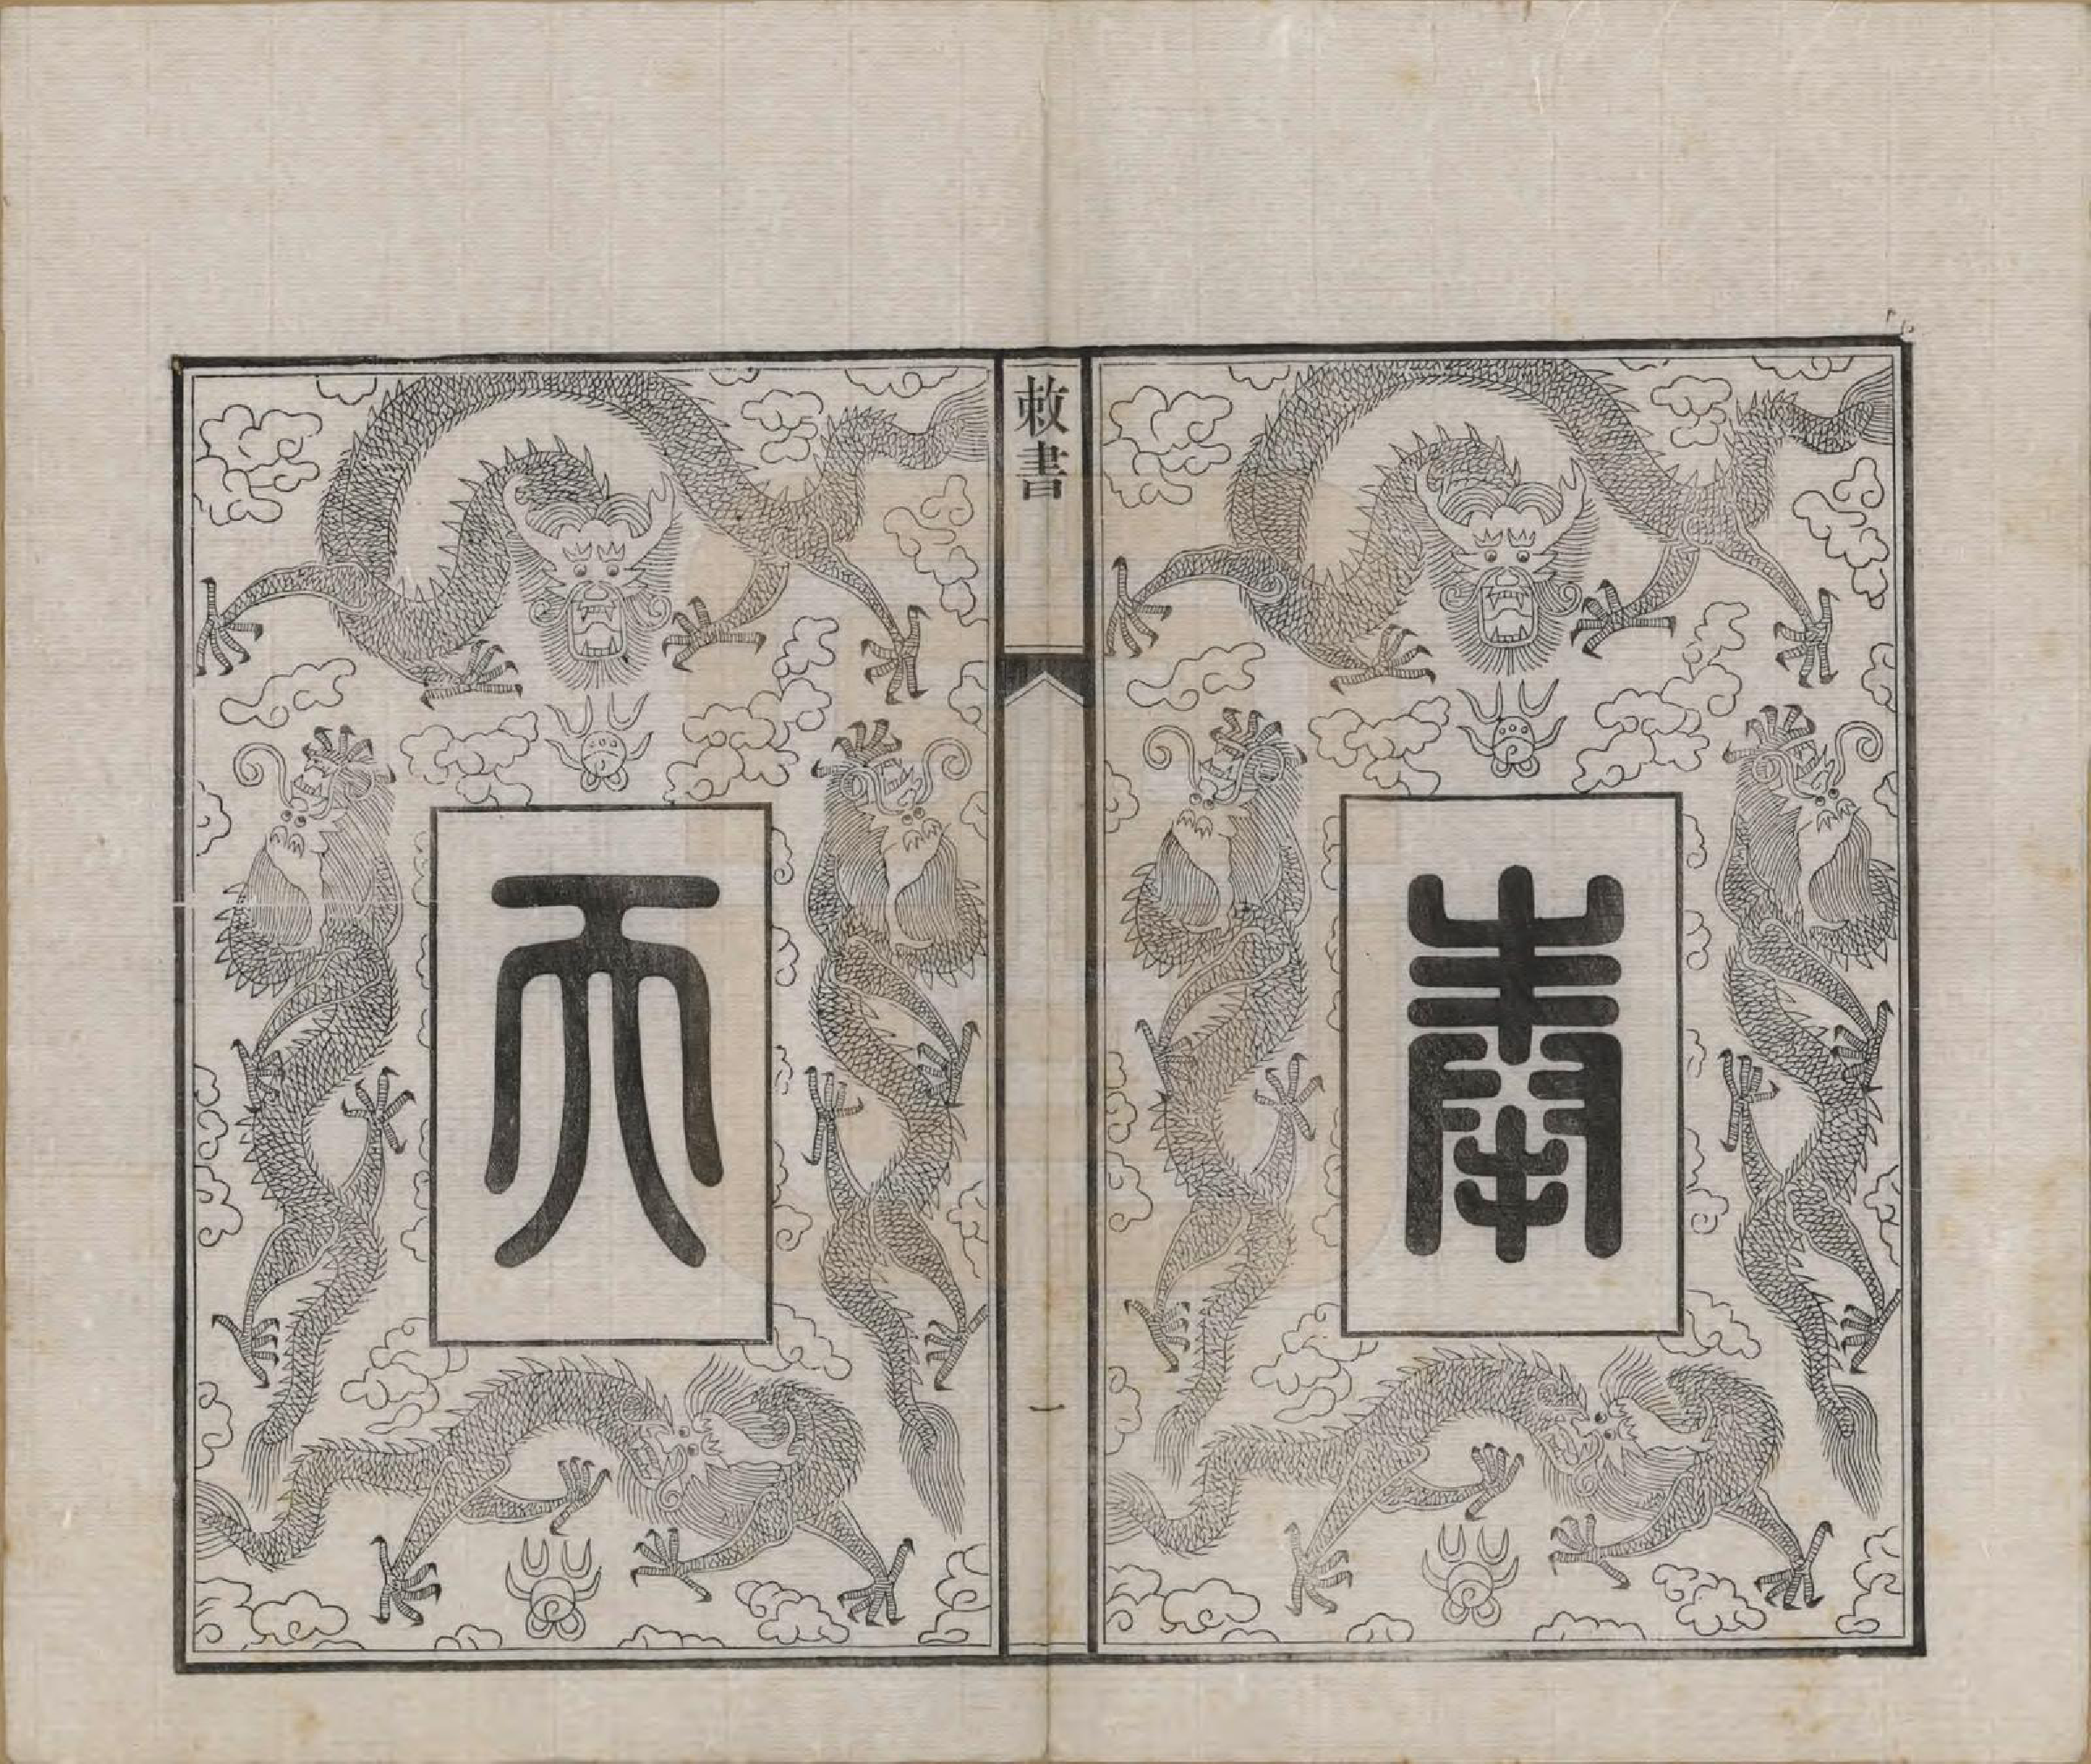 奉
敕書
一
天